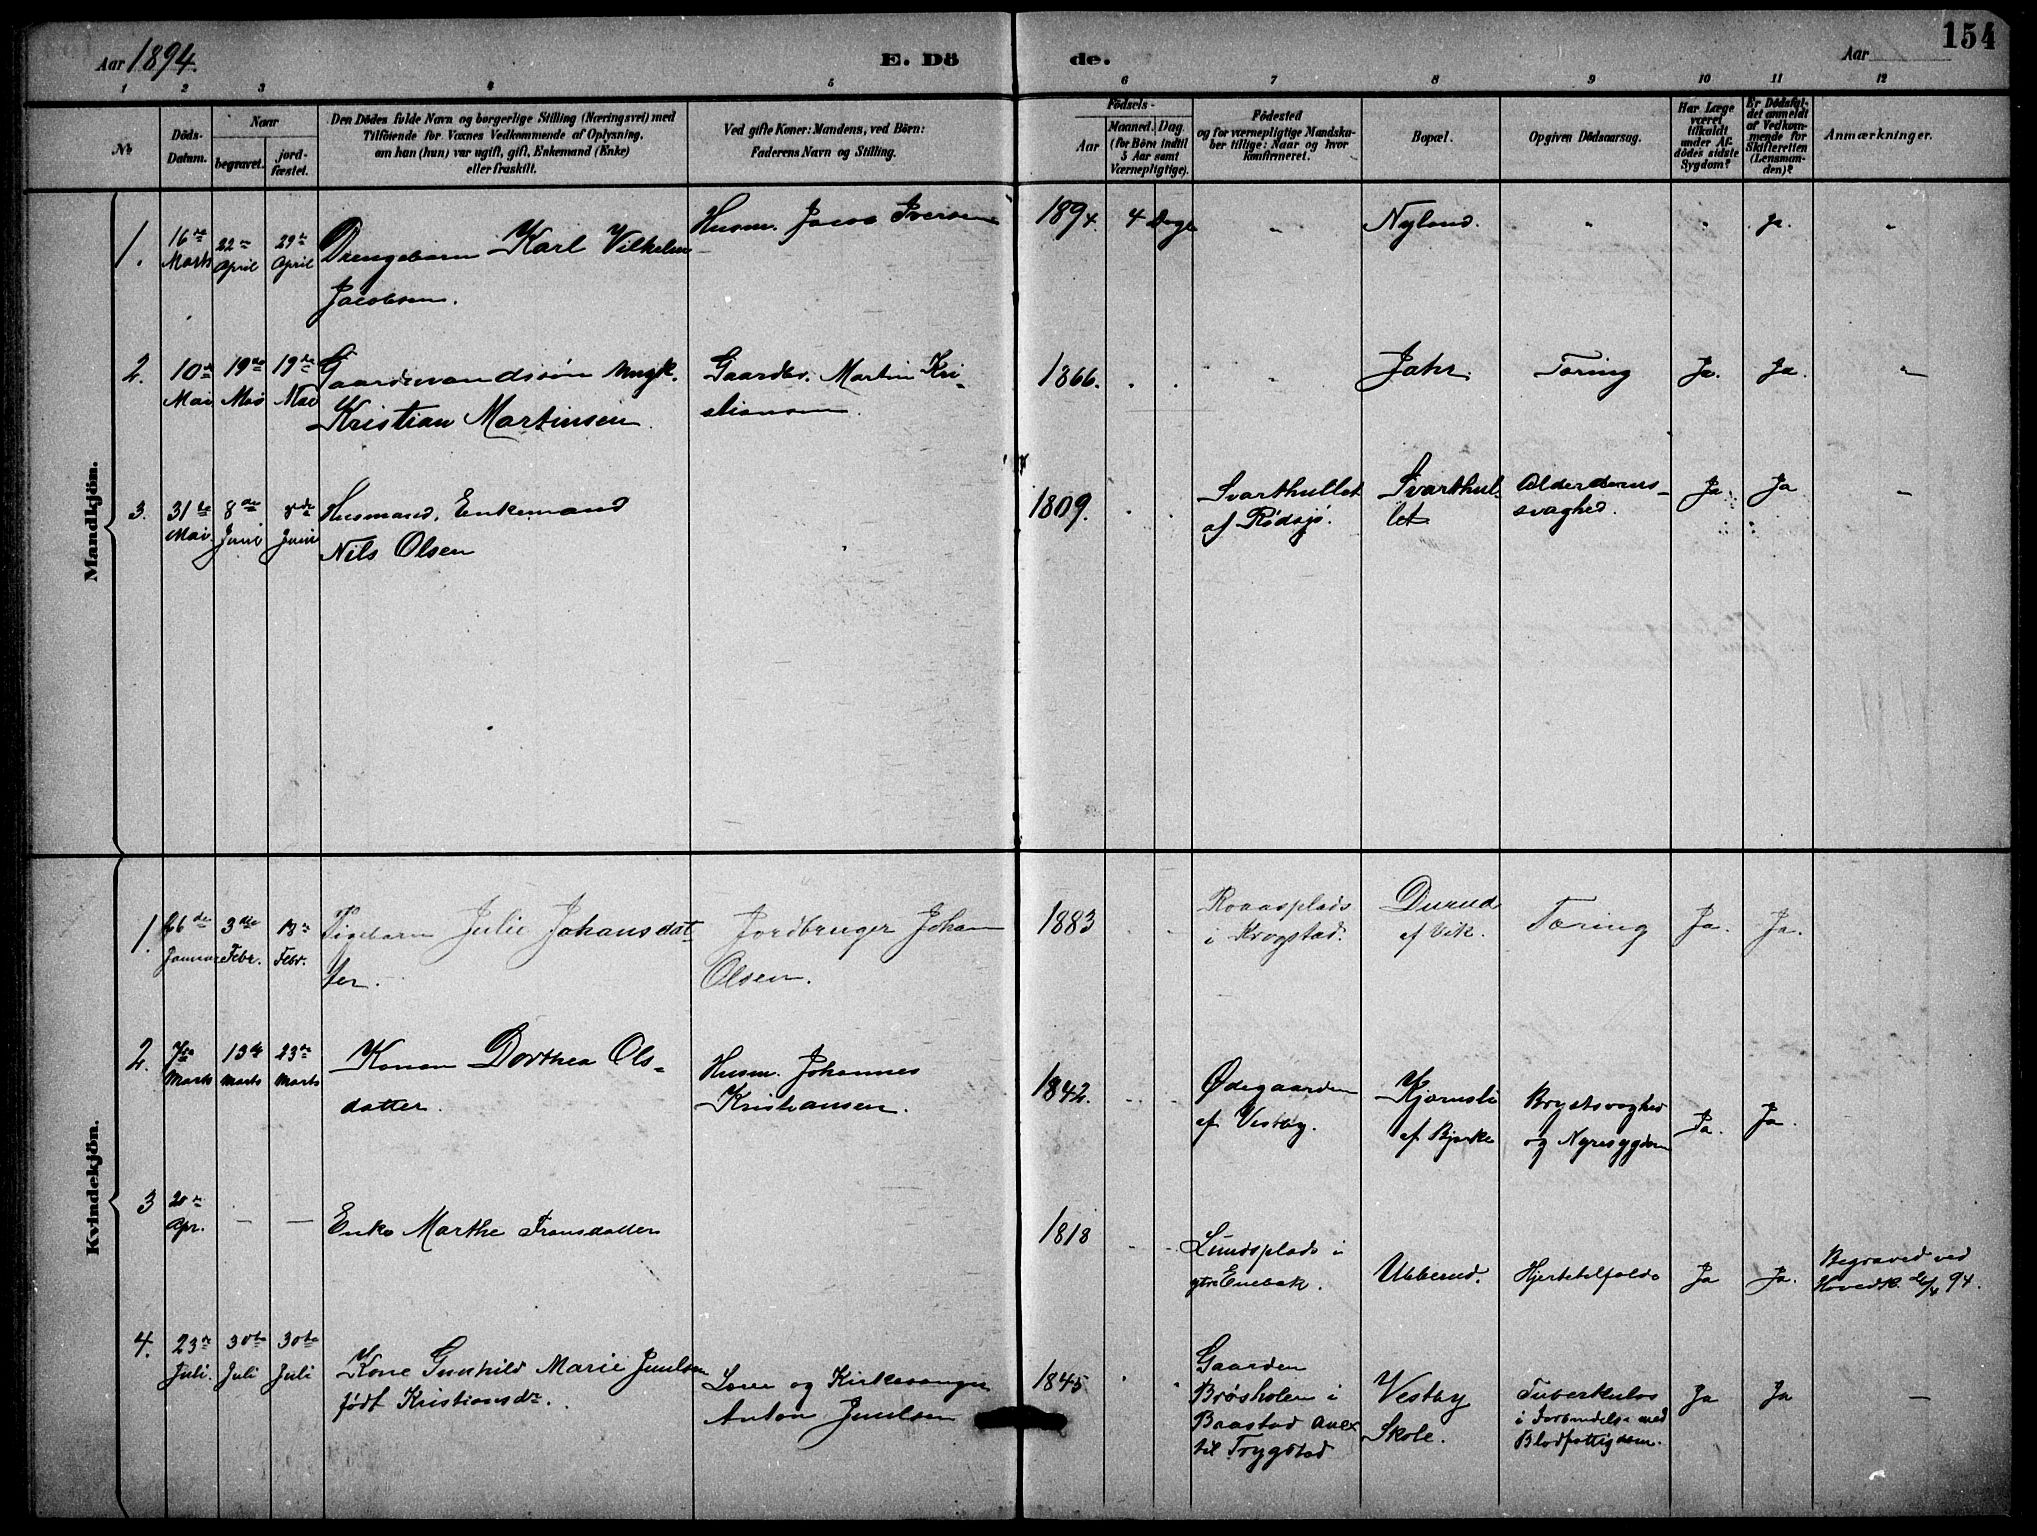 154
Aar 1894.
E. Dö de.
Aar
1 2 3 4 5 6 7 8 9 10 11 12
No
Döds-
Datum.
Naar
begravet.
jord-
fæstet.
Den Dödes fulde Navn og borgerlige Stilling (Næringsvei) med
Tilföiende for Voxnes Vedkommende af Oplysning,
om han (hun) var ugift, gift, Enkemand (Enke)
eller fraskilt.
Ved gifte Koner: Mandens, ved Börn:
Faderens Navn og Stilling.
Födsels-
Aar
Maaned. Dag.
(for Börn indtil
5 Aar samt
Værnepligtige).
Födested
og for værnepligtige Mandska-
ber tillige: Naar og hvor
konfirmeret.
Bopæl.
Opgiven Dödsaarsag.
Har Læge
været
tilkaldt
under Af-
dödes sidste
Sygdom?
Er Dödsfal-
det anmeldt
af Vedkom-
mende for
Skifteretten
(Lensman-
den)?
Anmærkninger.
Mandkjön.
1.
16de
Marts
22de
April
29de
April
Drengebarn Karl Vilhelm
Jacobsen.
Husm. Jacob Iversen
1894. 4 Dage
Nyland.
ja.
2.
10de
Mai
19de
Mai
19de
Mai
Gaardmandssøn ungk.
Kristian Martinsen.
Gaardbr. Martin Kri-
stiansen.
1866.
Jahr.
Tæring
Ja.
Ja.
3.
31te
Mai.
8de
Juni
8de
Juni
Husmand, Enkemand
Nils Olsen
1809.
Svarthullet
af Rødsjø.
Svarthul-
let
Alderdoms-
svaghed.
Ja
Ja
Kvindekjön.
1.
Januar
3die
Febr.
13de
Febr.
Pigebarn Julie Johansdat-
ter.
Jordbruger Johan
Olsen.
1883
Roaasplads
i Krogstad.
Durud
af Vik.
Tæring
Ja.
Ja.
2.
7de
Marts
13de
Marts
23de
Marts
Konen Dorthea Ols-
datter.
Husm. Johannes
Kristiansen.
1842.
Ødegaarden
af Vestby.
Kjærnsli
af Bjerke
Brystsvaghed
og Nyresygdom
Ja.
Ja.
3
20de
Apr.
— —
Enke Marthe Fransdatter
1818
Lundsplads i
ytre Enebak.
Ubberud.
Hjertetilfælde
Ja
Ja.
Begraved ved
Hovedk. 94.
4.
23de
Juli.
30te
Juli
30te
Juli
Kone Gunhild Marie Juulsen
født Kristiansdr.
Lærer og Kirkesanger
Anton Juulsen
1845
Gaarden
Brøsholen i
Baastad Anex
til Trygstad
Vestby
Skole.
Tuberkulos
i Forbindelse med
Blodfattigdom.
Ja
Ja
—